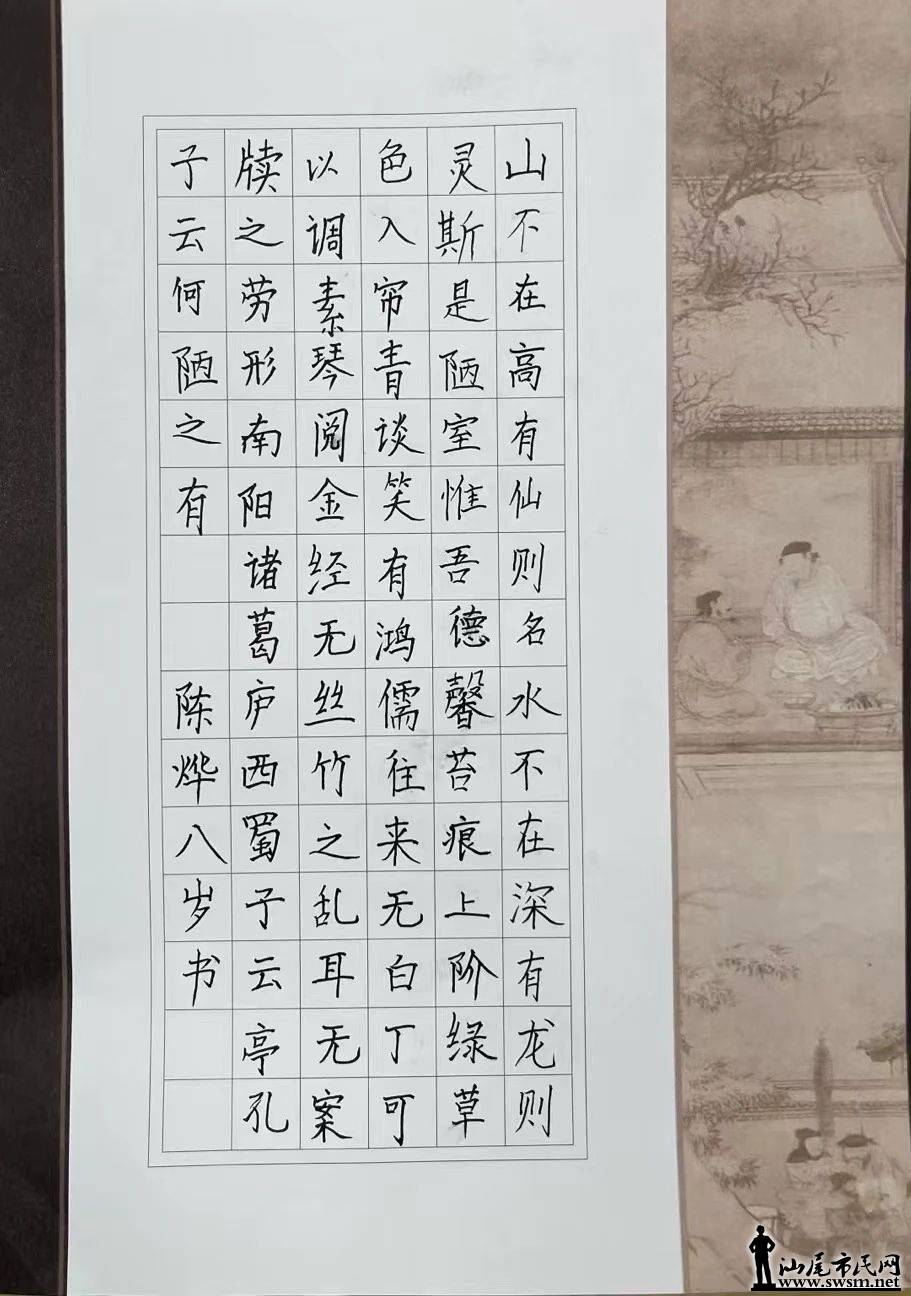 山不在高有仙则名水不在深有龙则
灵斯是陋室惟吾德馨苔痕上阶绿草
色入帘青谈笑有鸿儒往来无白丁可
以调素琴阅金经无丝竹之乱耳无案
牍之劳形南阳诸葛庐西蜀子云亭孔
子云何陋之有 陈烨八岁书
汕尾市民网
www.swsm.net